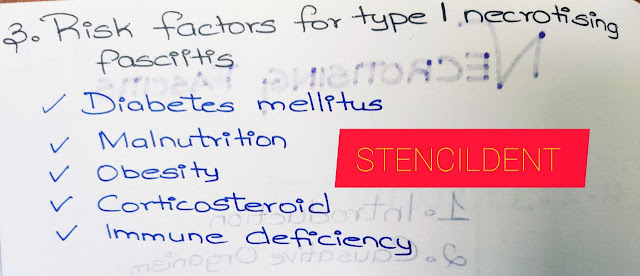 3. Risk factors for type 1 necrotising
fasciitis
✓ Diabetes mellitus
✓ Malnutrition
✓ Obesity
STENCILDENT
✓ Corticosteroid
✓ Immune deficiency